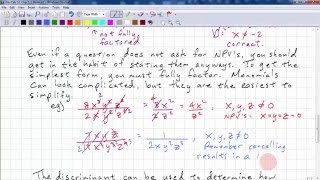 not fully
factored
VI: x ≠ -2
correct.
Even if a question does not ask for NPV's, you should
get in the habit of stating them anyways. To get the
simplest form, you must fully factor. Monomials
can look complicated, but they are the easiest to
simplify.
eg)
= 8x² = 4x² , x, y, z ≠ 0
NPV's: x=y=z=0
= 1 / 2xy²z³ , x, y, z ≠ 0
Remember cancelling
results in a
The discriminant can be used to determine how